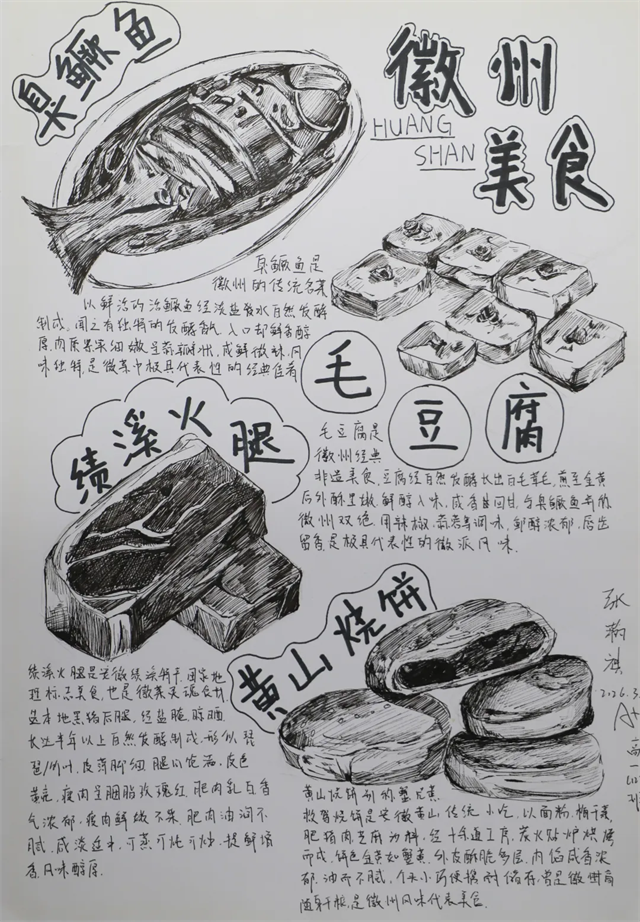 臭鳜鱼
徽州
HUANG
SHAN
美食
臭鳜鱼是
徽州的传统名菜
以鲜活的 鳜鱼经淡盐水自然发酵
制成，闻之有独特的发酵香气 入口却鲜香醇
厚，肉质紧实细嫩呈蒜瓣状，咸鲜微辣，风
味独特，是徽菜中极具代表性的经典佳肴
毛豆腐
毛豆腐是
徽州经典
非遗美食，豆腐经自然发酵长出白毛茸毛，煎至金黄
后外酥里嫩 鲜醇入味，咸香回甘，与臭鳜鱼并称
徽州双绝 用辣椒、蒜蓉等调味，郁醇浓郁，唇齿
留香是极具代表性的徽派风味．
绩溪火腿
绩溪火腿是安徽绩溪 国家地
理标志美食，也是徽菜灵魂食材
本地黑猪后腿，经盐腌晾晒
长达半年以上自然发酵制成，形似琵
琶/竹叶，皮薄脚细 腿心饱满，皮色
黄亮，瘦肉呈胭脂玫瑰红，肥肉乳白香
气浓郁，瘦肉鲜嫩不柴 肥肉油润不
腻，咸淡适中，可蒸可炖可炒，提鲜增
香，风味醇厚．
黄山烧饼
黄山烧饼别称蟹壳黄
救驾烧饼是安徽黄山传统小吃，以面粉，梅干菜，
肥猪肉芝麻为料，经十余道工序，炭火贴炉烘烤
而成，饼色金黄如蟹壳，外皮酥脆多层，内馅咸香浓
郁，油而不腻，个头小巧便携耐储存，曾是徽州商
随身干粮，是徽州风味代表美食．
2026.3.
A+